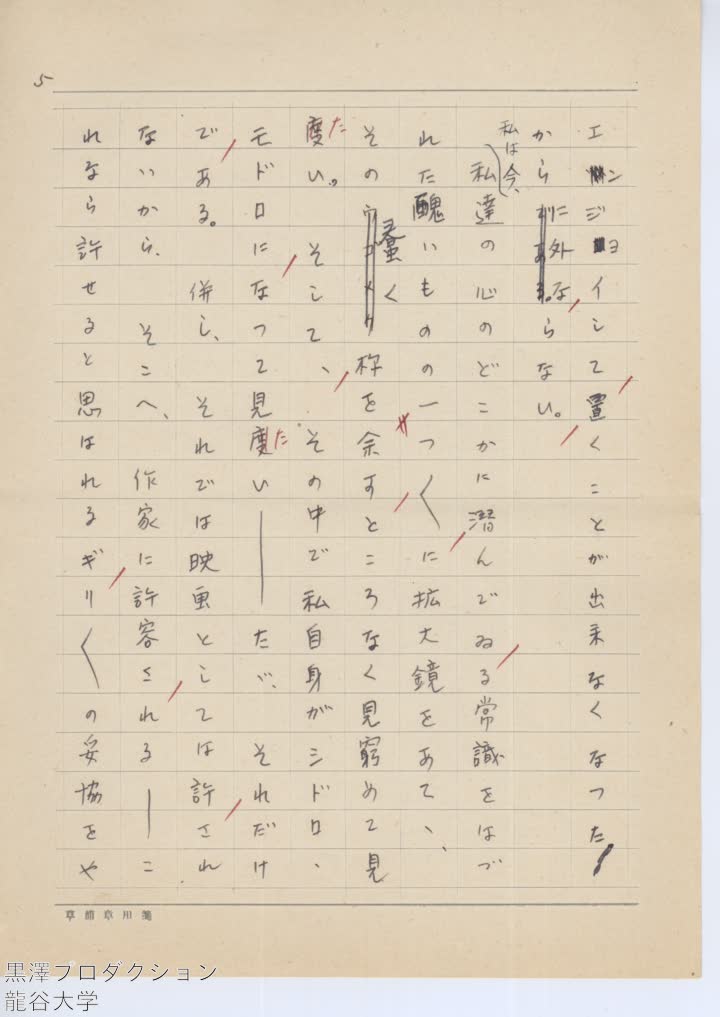 5
エンジョイして置くことが出来なくなつた
からに外ならない。
私は今、私達の心のどこかに潜んでゐる常識をはづ
れた醜いものの一つ〱に拡大鏡をあてゝ、
その蠢く枠を余すところなく見窮めて見
度い。そして、その中で私自身がシドロ、
モドロになつて見度い――たゞ、それだけ
である。併し、それでは映画としては許され
ないから、そこへ、作家に許容される――こ
れなら許せると思はれるギリ〱の妥協をや
草稿用章箋
黒澤プロダクション
龍谷大学